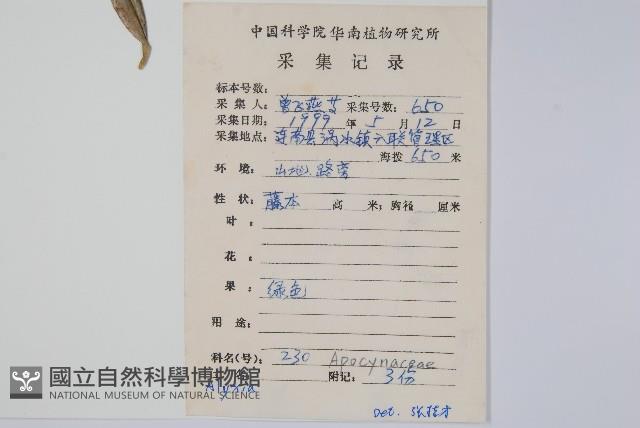 中国科学院华南植物研究所
采集记录
标本号数:
采集人: 曾飞燕等 采集号数: 650
采集日期: 1999 年 5 月 12 日
采集地点: 连南县涡水镇六联管理区
海拨 650 米
环境: 山地,路旁
性状: 藤本 高 米; 胸径 厘米
叶:
花:
果: 绿色
用途:
科名(号): 230 Apocynaceae
附记: 3份
Alyxia
Det. 张桂才
國立自然科學博物館
NATIONAL MUSEUM OF NATURAL SCIENCE